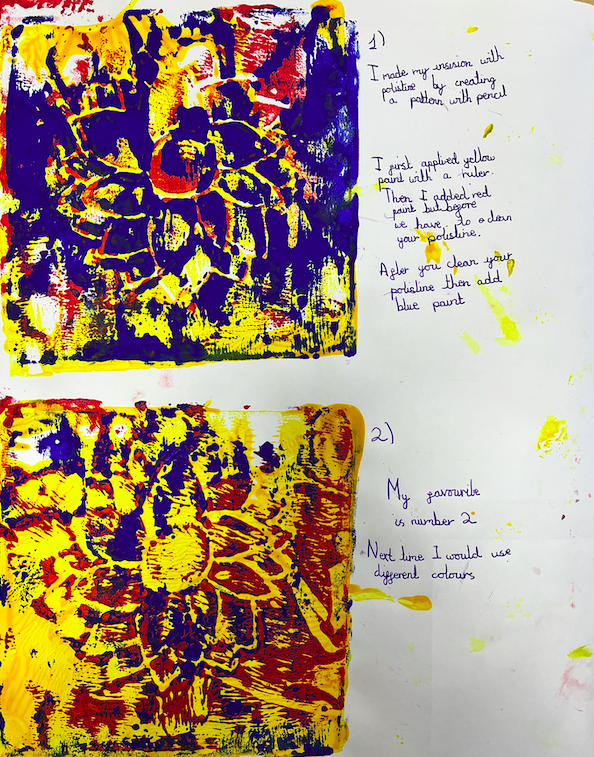 1)
I made my insision with
polistine by creating
a pattern with pencil
I first applyed yellow
paint with a ruler.
Then I added red
paint but before
we have to clean
your polistine.
After you clean your
polistine then add
blue paint
2)
My favourite
is number 2
Next time I would use
different colours